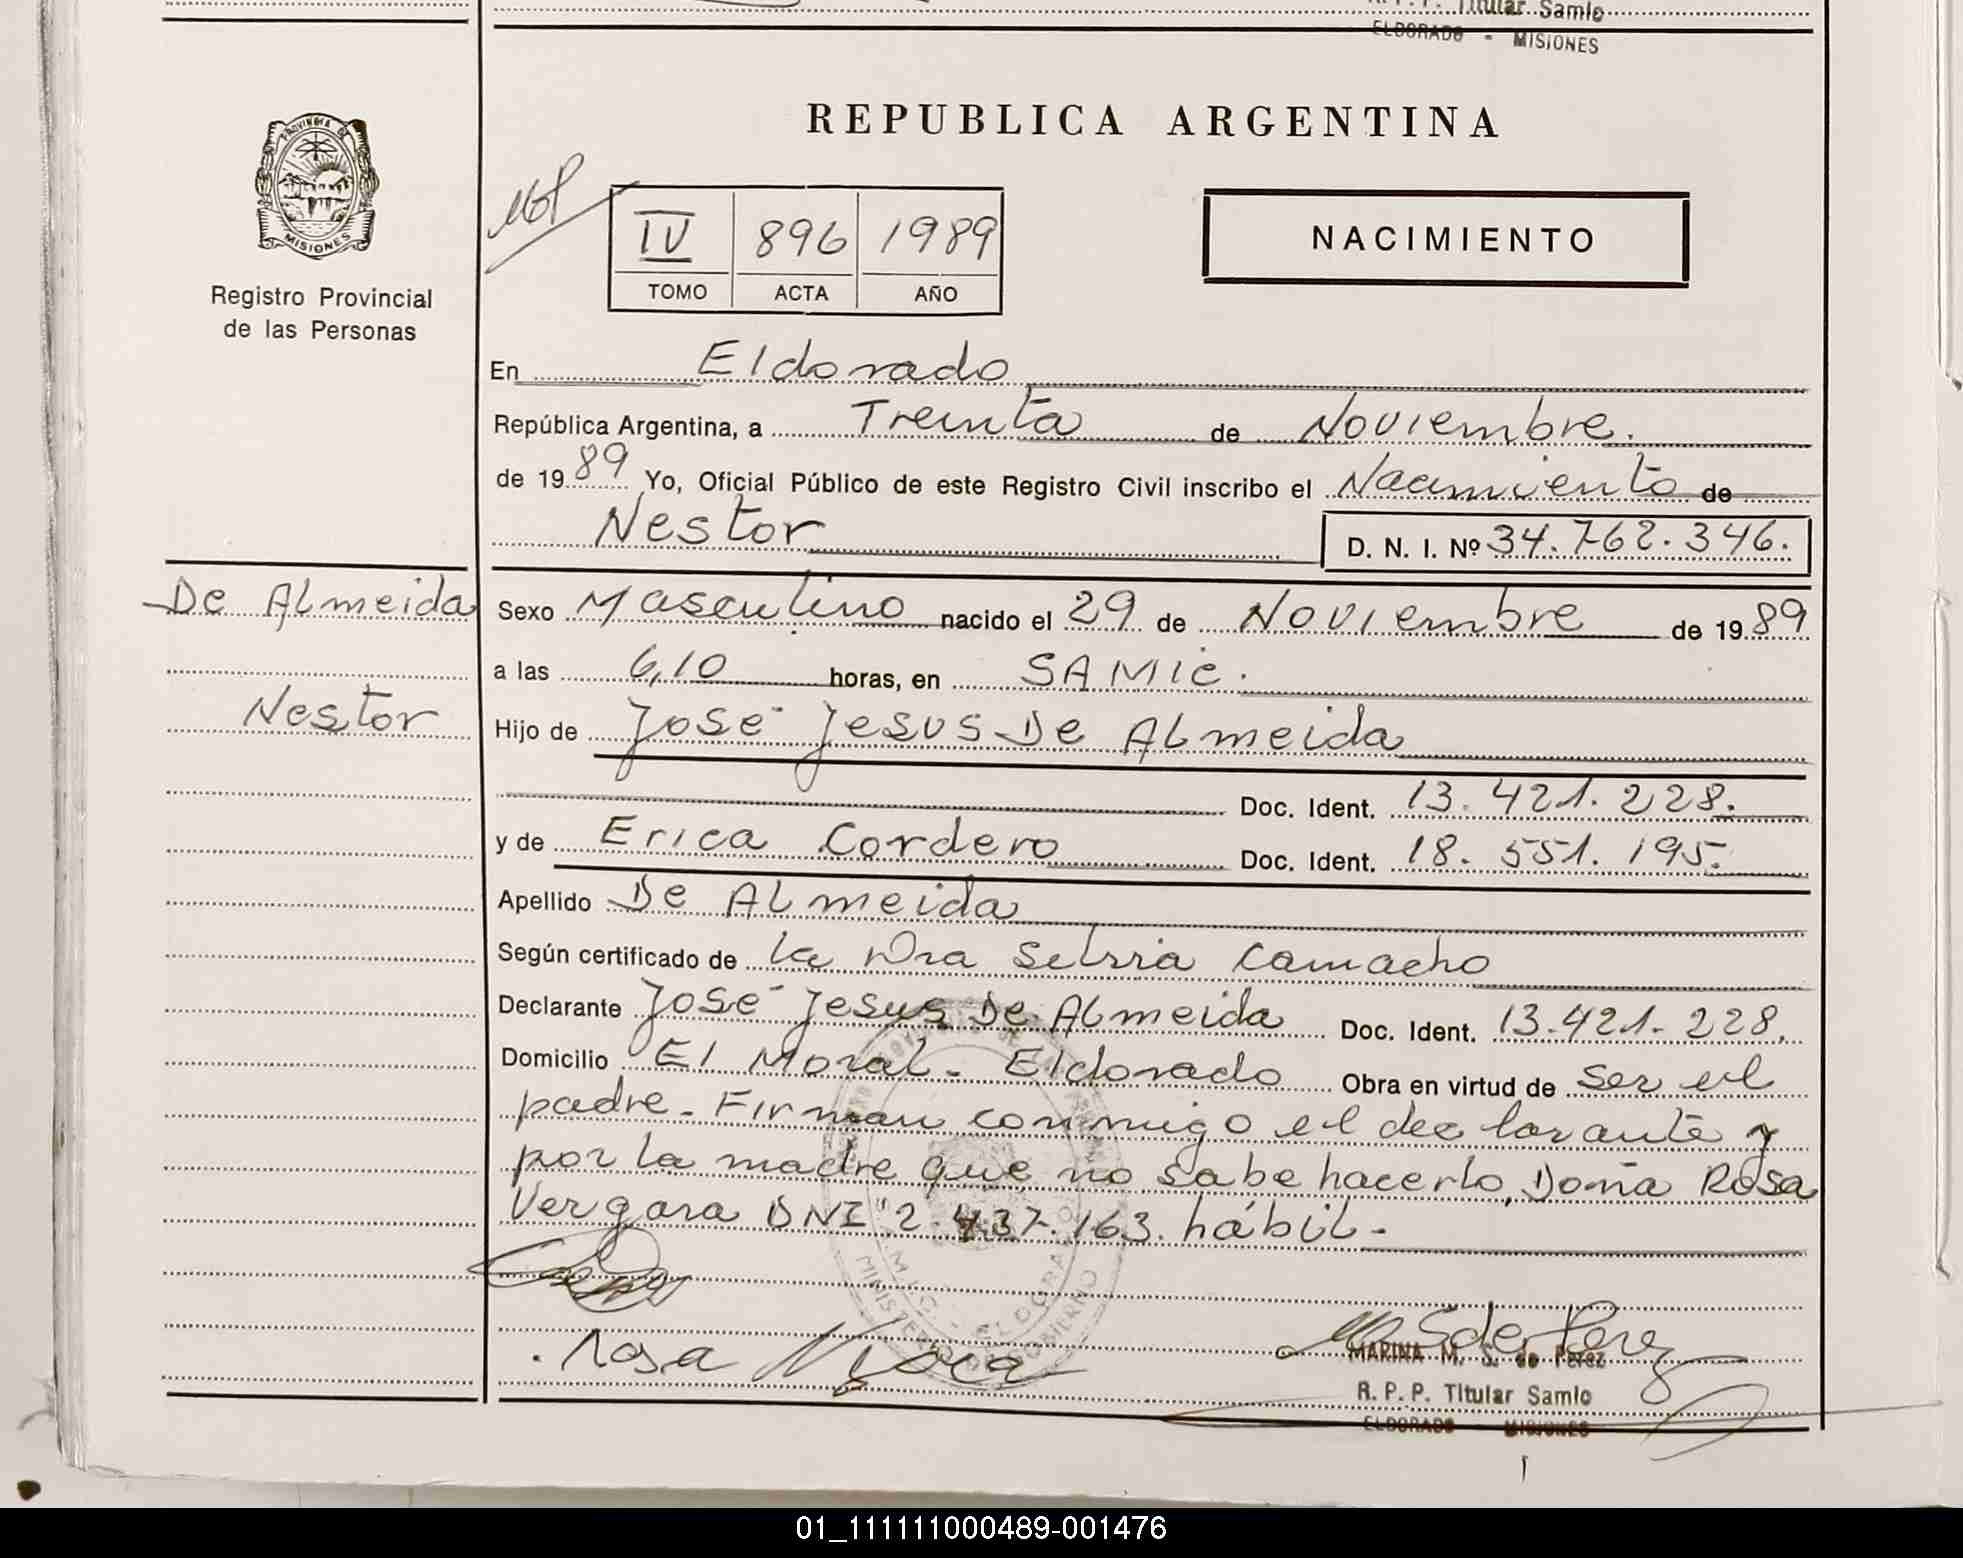 R. P. P. Titular Samic
ELDORADO - MISIONES
REPUBLICA ARGENTINA
PROVINCIA DE
MISIONES
Registro Provincial
de las Personas
IV 896 1989
TOMO ACTA AÑO
NACIMIENTO
En Eldorado
República Argentina, a Treinta de Noviembre.
de 1989 Yo, Oficial Público de este Registro Civil inscribo el Nacimiento de
Nestor D. N. I. Nº 34.762.346.
De Almeida
Nestor
Sexo Masculino nacido el 29 de Noviembre de 1989
a las 6,10 horas, en SAMIC.
Hijo de José Jesus De Almeida
Doc. Ident. 13.421.228.
y de Erica Cordero Doc. Ident. 18.551.195.
Apellido De Almeida
Según certificado de la Dra Silvia Camacho
Declarante José Jesus De Almeida Doc. Ident. 13.421.228.
Domicilio El Moral - Eldorado Obra en virtud de ser el
padre - Firman conmigo el declarante y
por la madre que no sabe hacerlo, Doña Rosa
Vergara DNI 2.437.163. hábil -
Rosa
MARINA M. S. de Perez
R. P. P. Titular Samic
ELDORADO - MISIONES
01_111111000489-001476